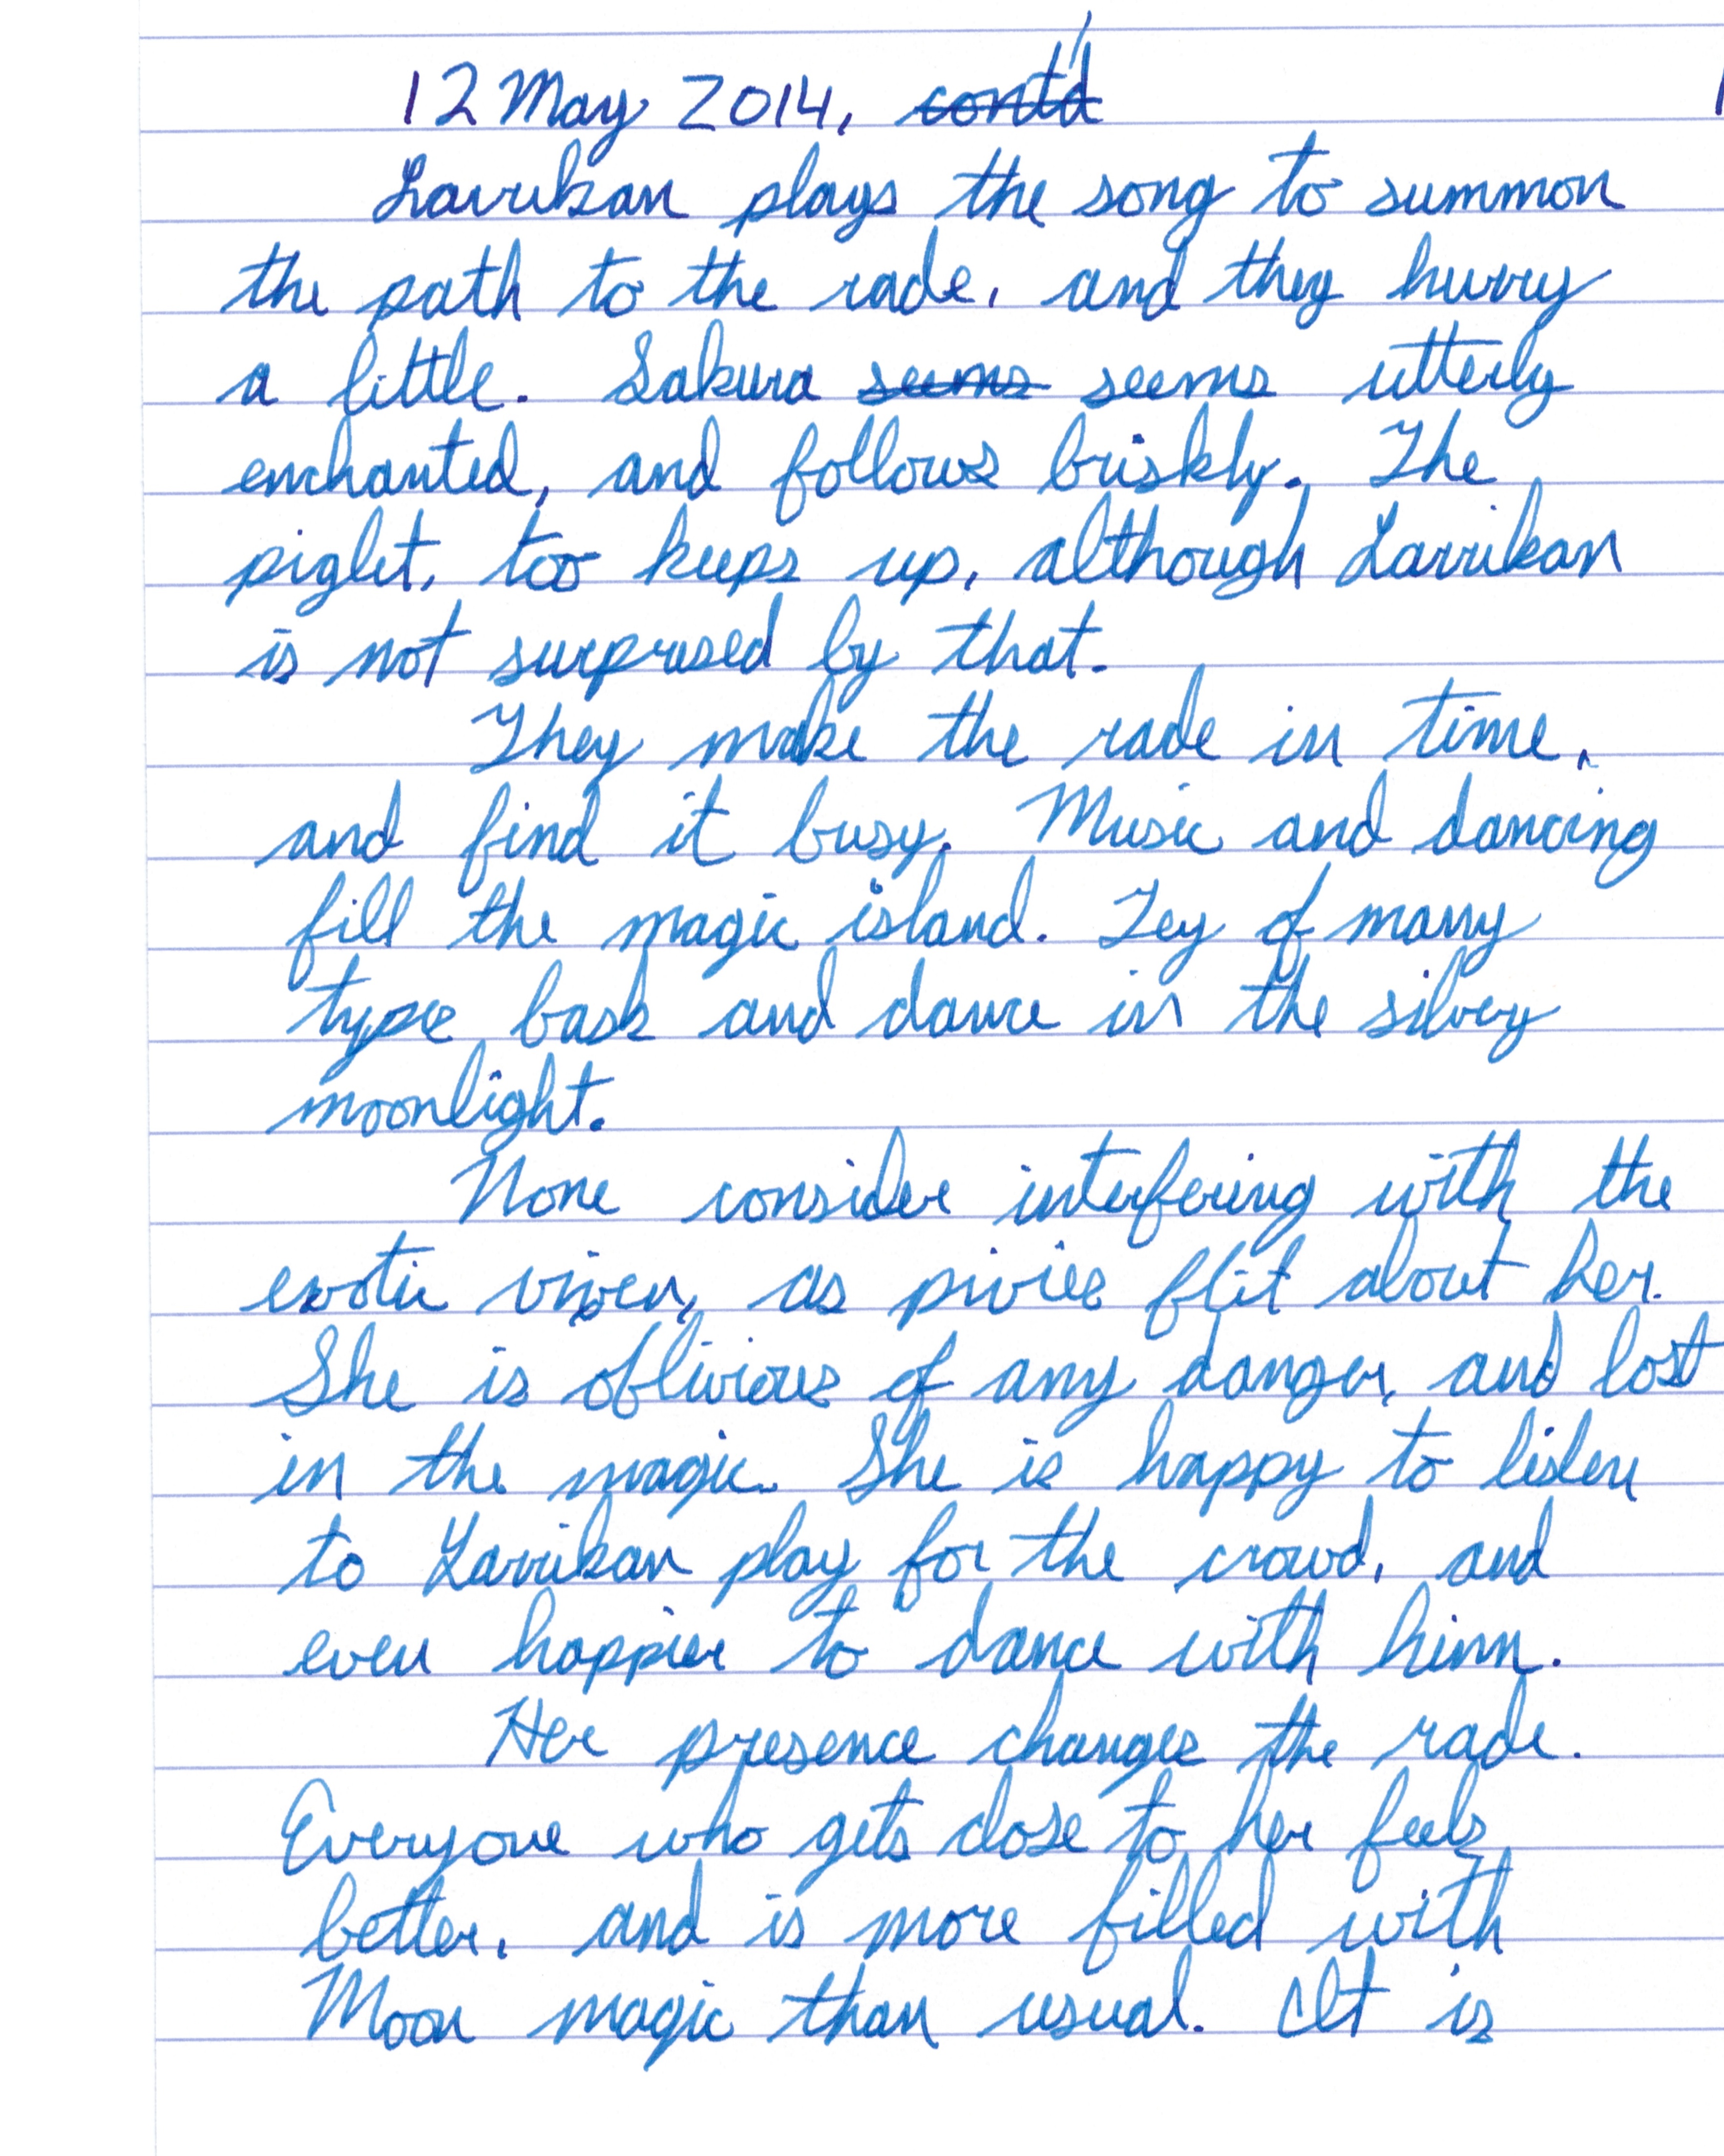 12 May 2014, ~~cont'd~~
Larrikan plays the song to summon
the path to the rade, and they hurry
a little. Sakura ~~seems~~ seems utterly
enchanted, and follows briskly. The
piglet, too keeps up, although Larrikan
is not surprised by that.
They make the rade in time,
and find it busy. Music and dancing
fill the magic island. Fey of many
type bask and dance in the silvery
moonlight.
None consider interfering with the
exotic vixen, as pixies flit about her.
She is oblivious of any danger, and lost
in the magic. She is happy to listen
to Larrikan play for the crowd, and
even happier to dance with him.
Her presence changes the rade.
Everyone who gets close to her feels
better, and is more filled with
Moon magic than usual. It is